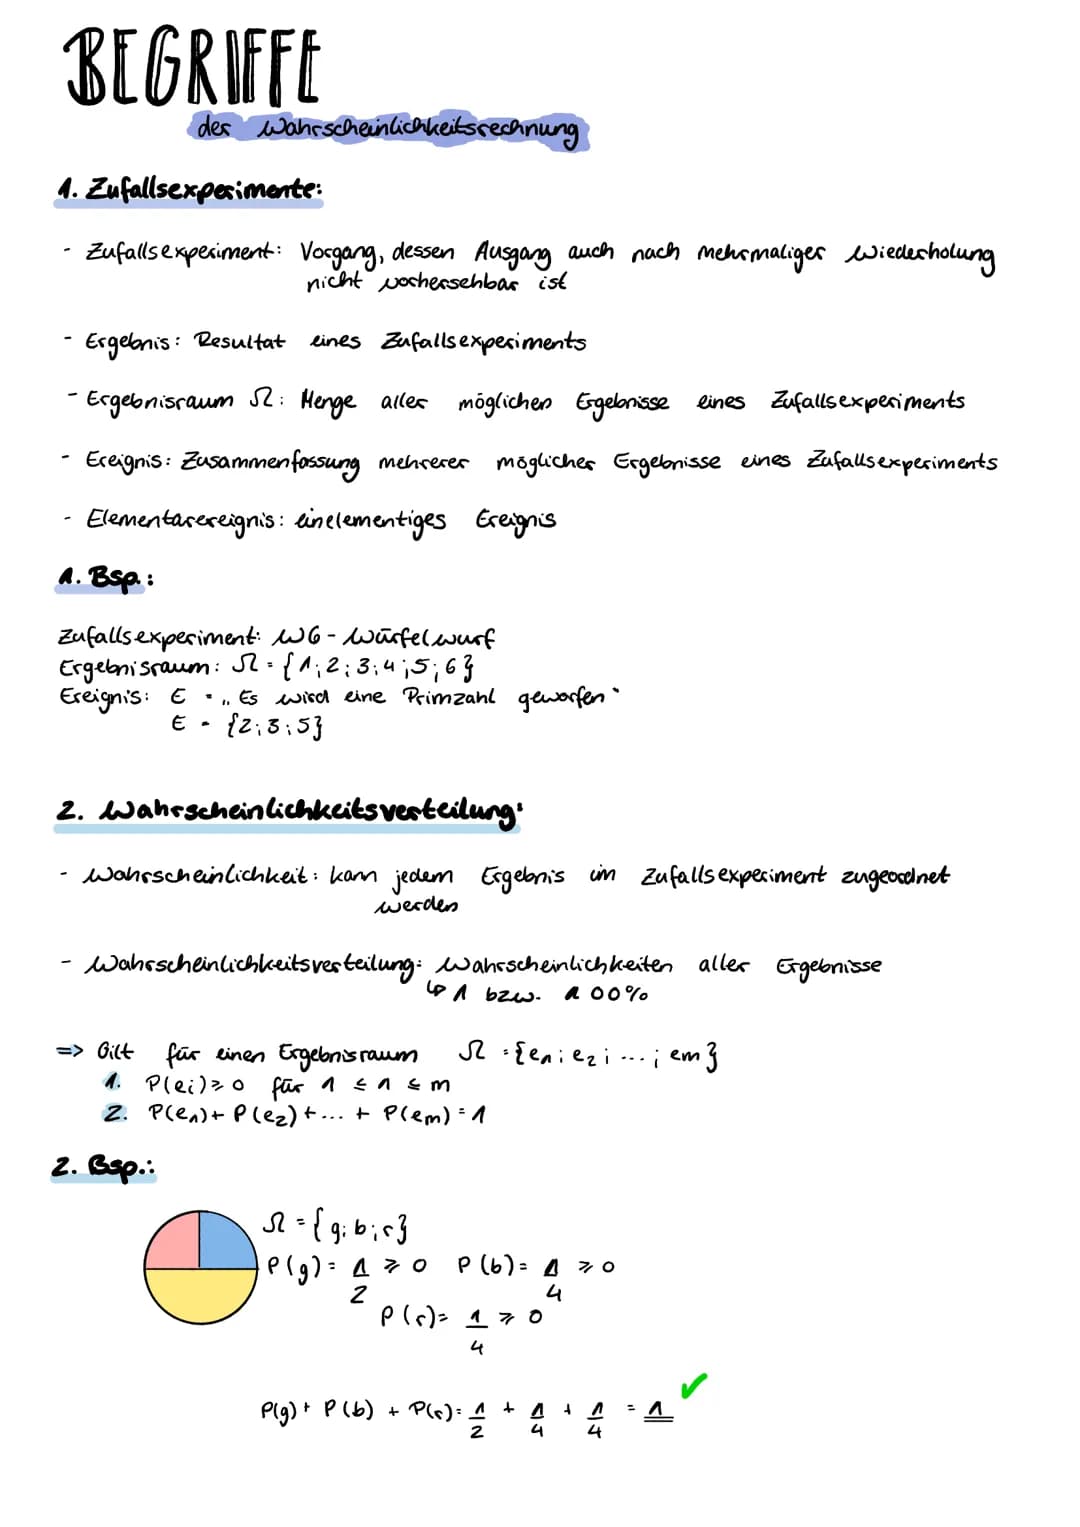 BEGRIFFE
der Wahrscheinlichkeitsrechnung
1. Zufallsexperimente:
- Zufallsexperiment: Vorgang, dessen Ausgang auch nach mehrmaliger Wiederholung
nicht vorhersehbar ist
- Ergebnis: Resultat eines Zufallsexperiments
- Ergebnisraum Ω: Menge aller möglichen Ergebnisse eines Zufallsexperiments
- Ereignis: Zusammenfassung mehrerer möglicher Ergebnisse eines Zufallsexperiments
- Elementarereignis: einelementiges Ereignis
1. Bsp.:
Zufallsexperiment: W6 - Würfelwurf
Ergebnisraum: Ω = {1; 2; 3; 4; 5; 6}
Ereignis: E = „Es wird eine Primzahl geworfen“
E = {2; 3; 5}
2. Wahrscheinlichkeitsverteilung:
- Wahrscheinlichkeit: kann jedem Ergebnis im Zufallsexperiment zugeordnet
werden
- Wahrscheinlichkeitsverteilung: Wahrscheinlichkeiten aller Ergebnisse
↳ 1 bzw. 100%
=> Gilt für einen Ergebnisraum Ω = {e₁; e₂; ...; em}
1. P(ei) ≥ 0 für 1 ≤ 1 ≤ m
2. P(e₁) + P(e₂) + ... + P(em) = 1
2. Bsp.:
Ω = {g; b; r}
P(g) = 1/2 ≥ 0 P(b) = 1/4 ≥ 0
P(r) = 1/4 ≥ 0
P(g) + P(b) + P(r) = 1/2 + 1/4 + 1/4 = 1 ✓